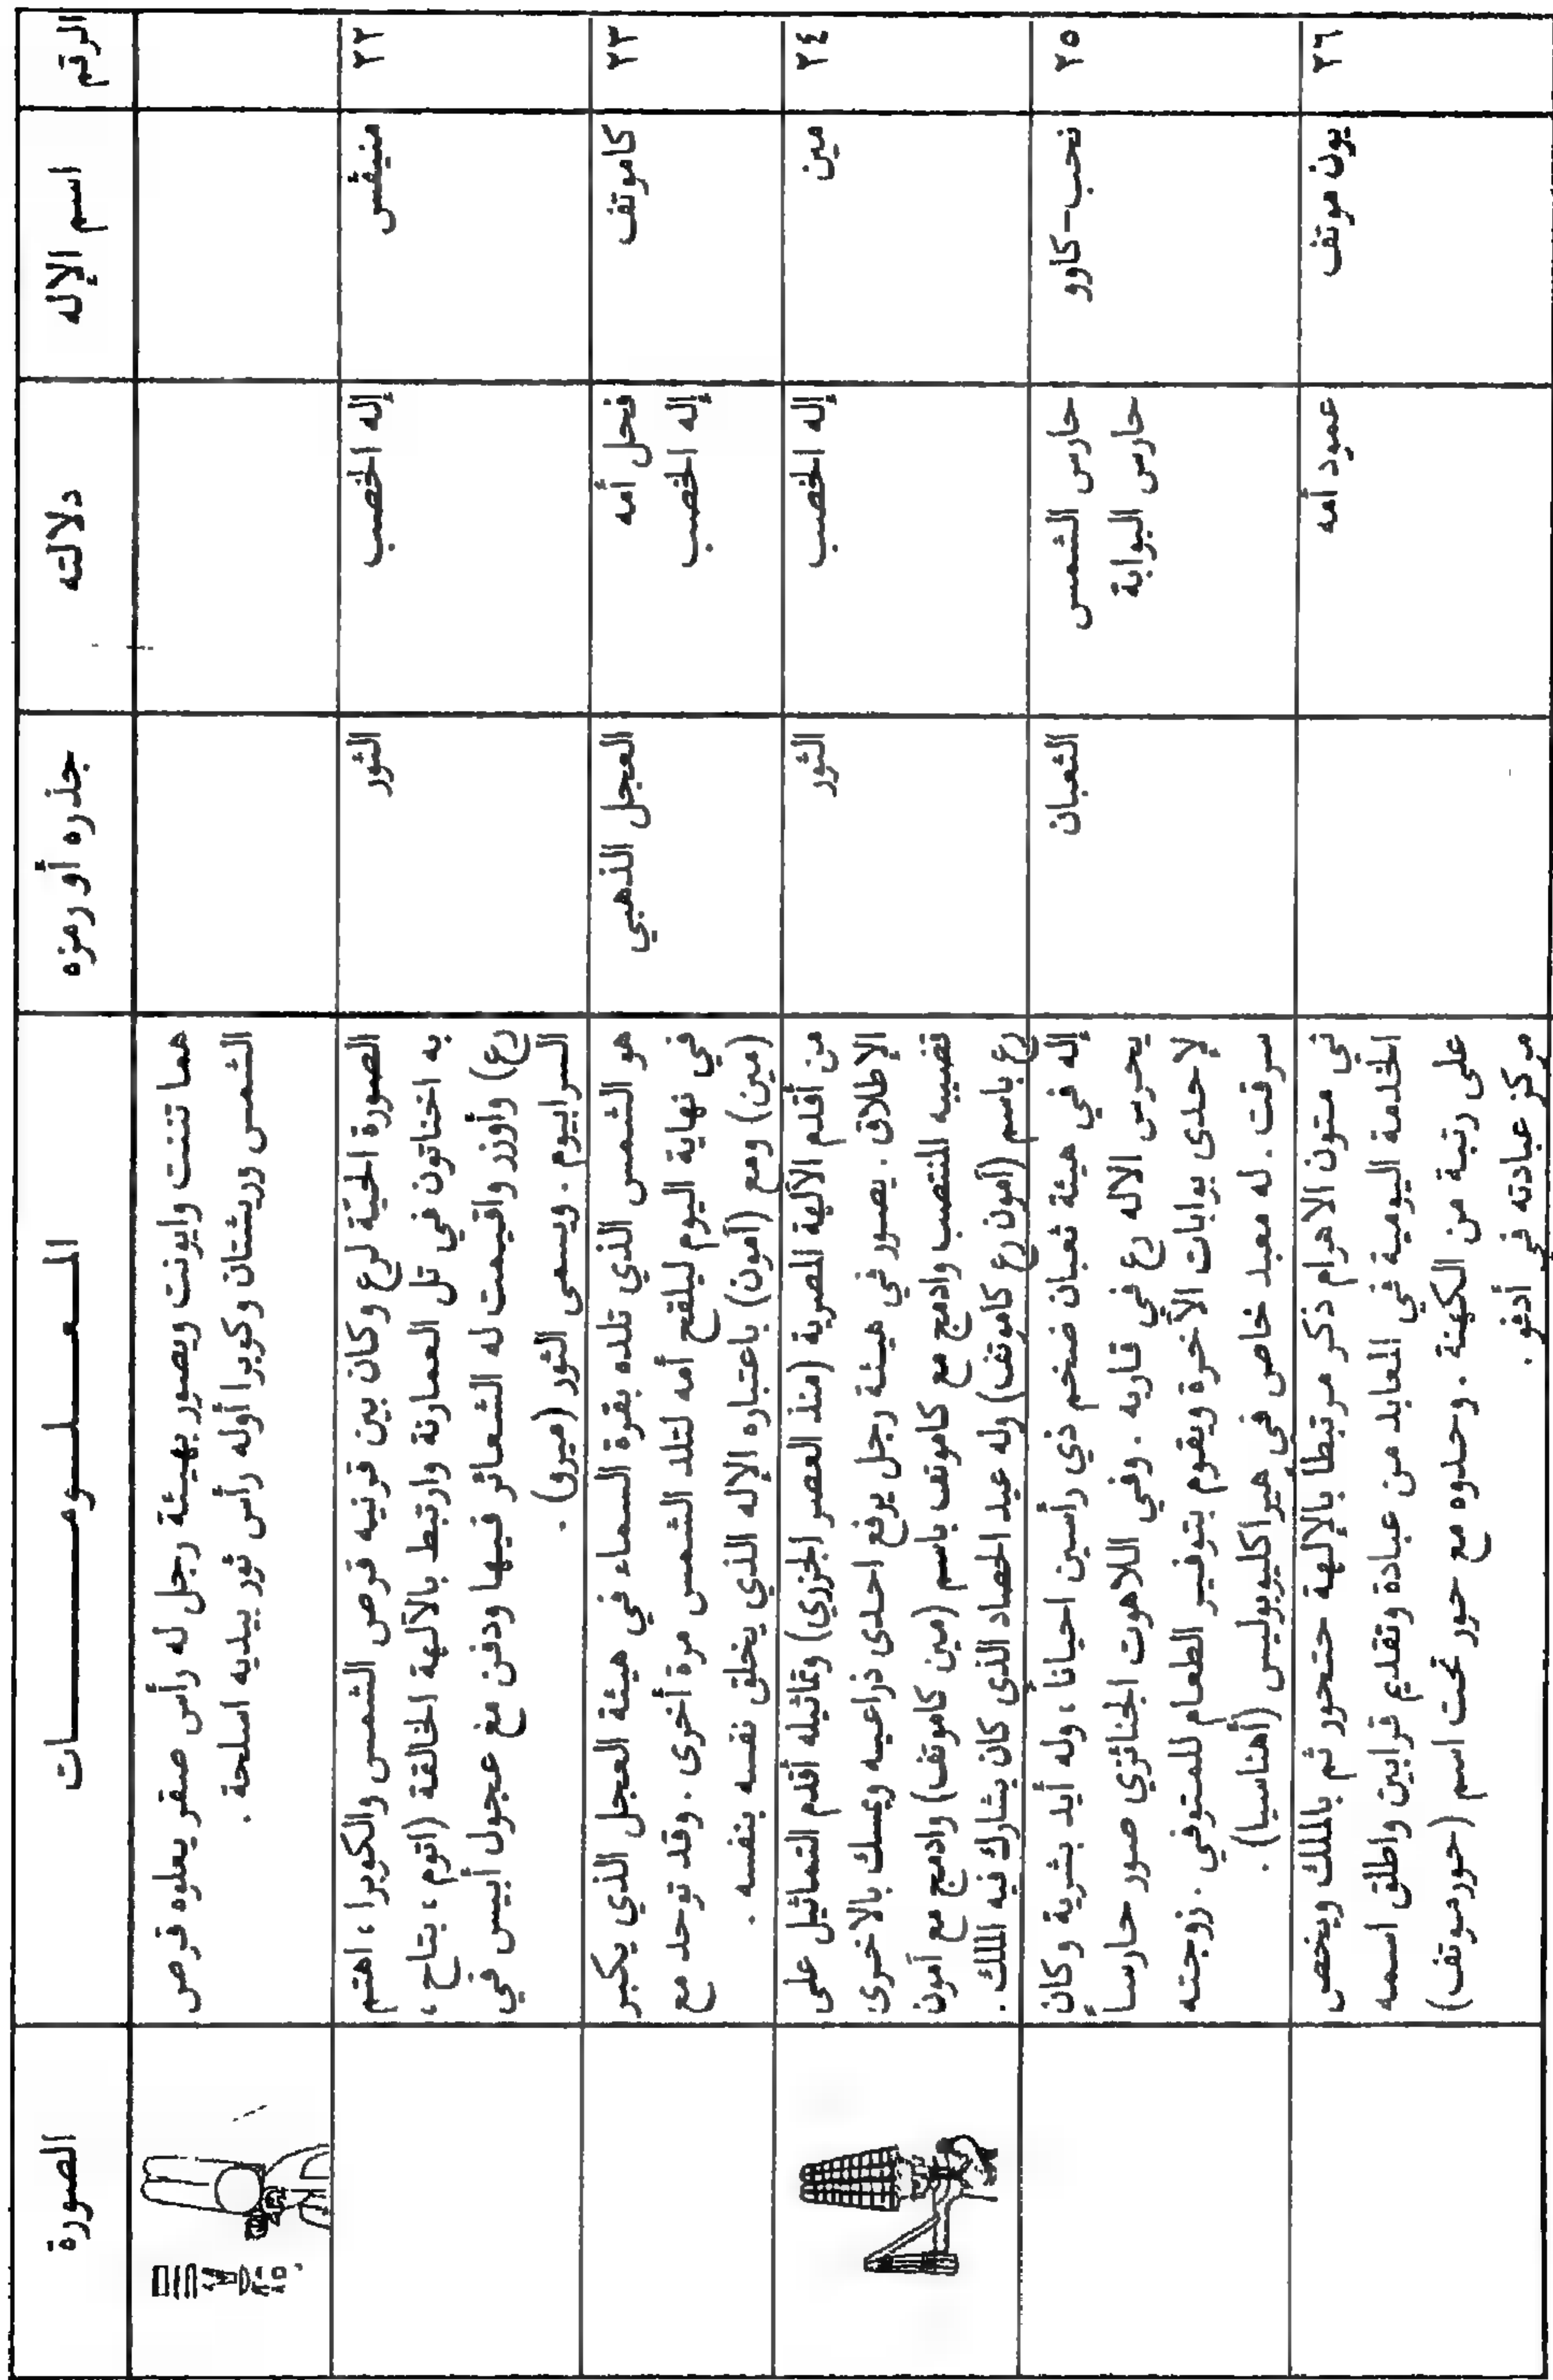 الرقم
اسم الإله
دلالته
جذره أو رمزه
المعلومات
الصورة
هما تننت وايونت ويصور بهيئة رجل له رأس صقر يعلوه قرص
الشمس وريشتان وكوبرا أوله رأس ثور بيديه اسلحة .
٢٢
منيفس
إله الخصب
الثور
الصورة الحيّة لرع وكان بين قرنيه قرص الشمس والكوبرا ، اهتم
به اخناتون في تل العمارنة وارتبط بالآلهة الخالقة (أتوم ، بتاح ،
رع) وأوزر واقيمت له الشعائر فيها ودفن مع عجول أبيس في
السرابيوم . ويسمى الثور (ميرو) .
٢٣
كاموتف
فحل أمه
إله الخصب
العجل الذهبي
هو الشمس الذي تلده بقرة السماء في هيئة العجل الذي يكبر
في نهاية اليوم ليلقح أمه لتلد الشمس مرة أخرى . وقد توحد مع
(مين) ومع (آمون) باعتباره الإله الذي يخلق نفسه بنفسه .
٢٤
مين
إله الخصب
الثور
من أقدم الآلهة المصرية (منذ العصر الجزري) وتماثيله أقدم التماثيل على
الإطلاق . يصور في هيئة رجل يرفع احدى ذراعيه ويمسك بالاخرى
قضيبه المنتصب وادمج مع كاموتف باسم (مين كاموتف) وادمج مع آمون
رع باسم (آمون رع كاموتف) وله عيد الحصاد الذي كان يشارك فيه الملك .
٢٥
نحب-كاوو
حارس الشمس
حارس البوابة
الثعبان
إله في هيئة ثعبان ضخم ذي رأسين احيانا ، وله أيد بشرية وكان
يحرس الاله رع في قاربه . وفي اللاهوت الجنائزي صور حارساً
لإحدى بوابات الآخرة ويقوم بتوفير الطعام للمتوفي . زوجته
سرقت . له معبد خاص في هيراكليوبوليس (أهناسيا) .
٢٦
يون موتف
عمود أمه
في متون الاهرام ذكر مرتبطا بالإلهة حتحور ثم بالملك ويخص
الخدمة اليومية في المعابد من عبادة وتقديم قرابين واطلق اسمه
على رتبة من الكهنة . وحدوه مع حور تحت اسم (حورموتف)
مركز عبادته في أدفو .